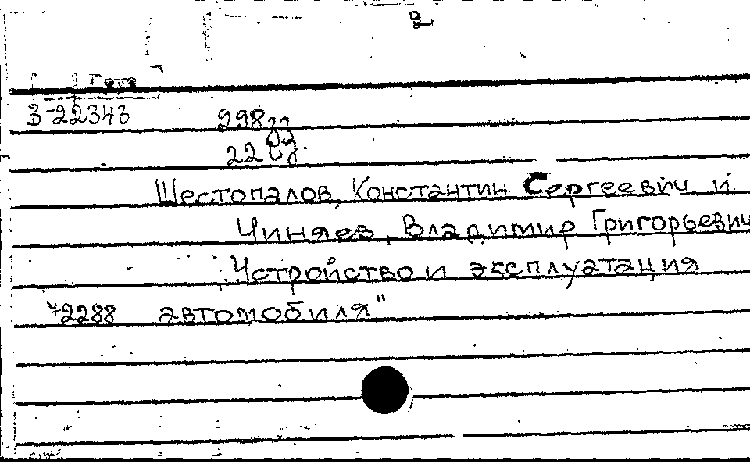 3-22343
Шестопалов, Константин Сергеевич и
Чиняев, Владимир Григорьевич
Устройство и эксплуатация
72288 автомобиля"